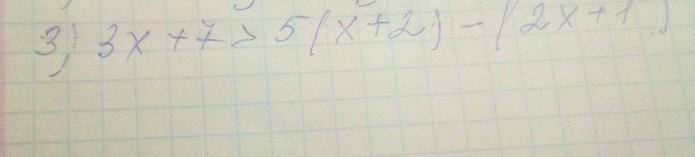 3) 3x+7>5(x+2)-(2x+1)